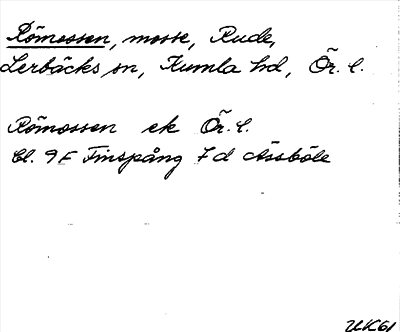 Römossen, mosse, Rude,
Lerbäcks sn, Kumla hd, Ör. l.
Römossen ek Ör. l.
Bl. 9F Finspång 7d Åssböle
UK61